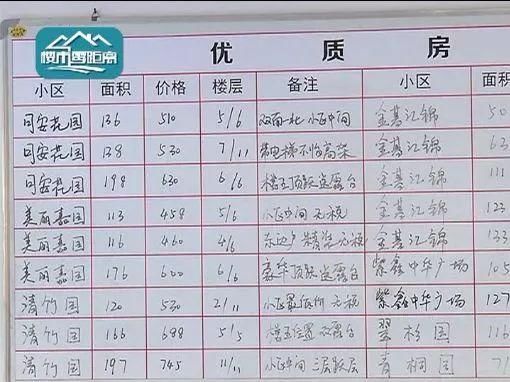 楼市零距离
优 质 房
小区 面积 价格 楼层 备注 小区 面积
同安花园 136 510 5/6 双南一北 小区中间 金基汇锦 50
同安花园 138 530 7/11 带电梯不怕高 金基汇锦 63
同安花园 198 630 6/6 楼王顶跃 露台 金基汇锦 111
美丽嘉园 113 458 5/6 小区中间 无税 金基汇锦 123
美丽嘉园 116 460 4/6 东边户 精装 无税 金基汇锦 133
美丽嘉园 176 600 6/6 豪华顶跃 露台 紫鑫中华广场 105
清竹园 120 530 2/11 小区 无税 紫鑫中华广场 127
清竹园 166 688 5/5 楼王位置 露台 翠杉园 116
清竹园 197 745 11/11 小区中间 三层跃层 青桐园 71